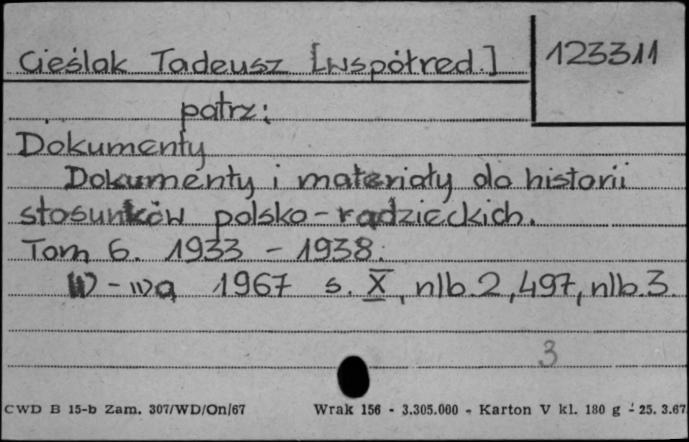 Cieślak Tadeusz [współred.]
123311
patrz:
Dokumenty
Dokumenty i materiały do historii
stosunków polsko-radzieckich.
Tom 6. 1933 - 1938.
W-wa 1967 s. X, nlb.2, 497, nlb.3.
3
CWD B 15-b Zam. 307/WD/On/67 Wrak 156 - 3.305.000 - Karton V kl. 180 g - 25. 3.67